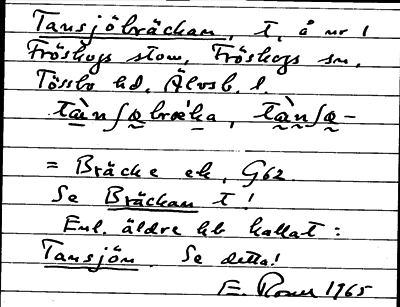 Tansjöbräckan, t, å nr 1
Fröskogs stom, Fröskogs sn,
Tössbo hd, Älvsb. l.
tànʃøbrœka, tànʃø-
= Bräcke ek, G62
Se Bräckan t!
Enl. äldre kb kallat:
Tansjön. Se detta!
E. 1965